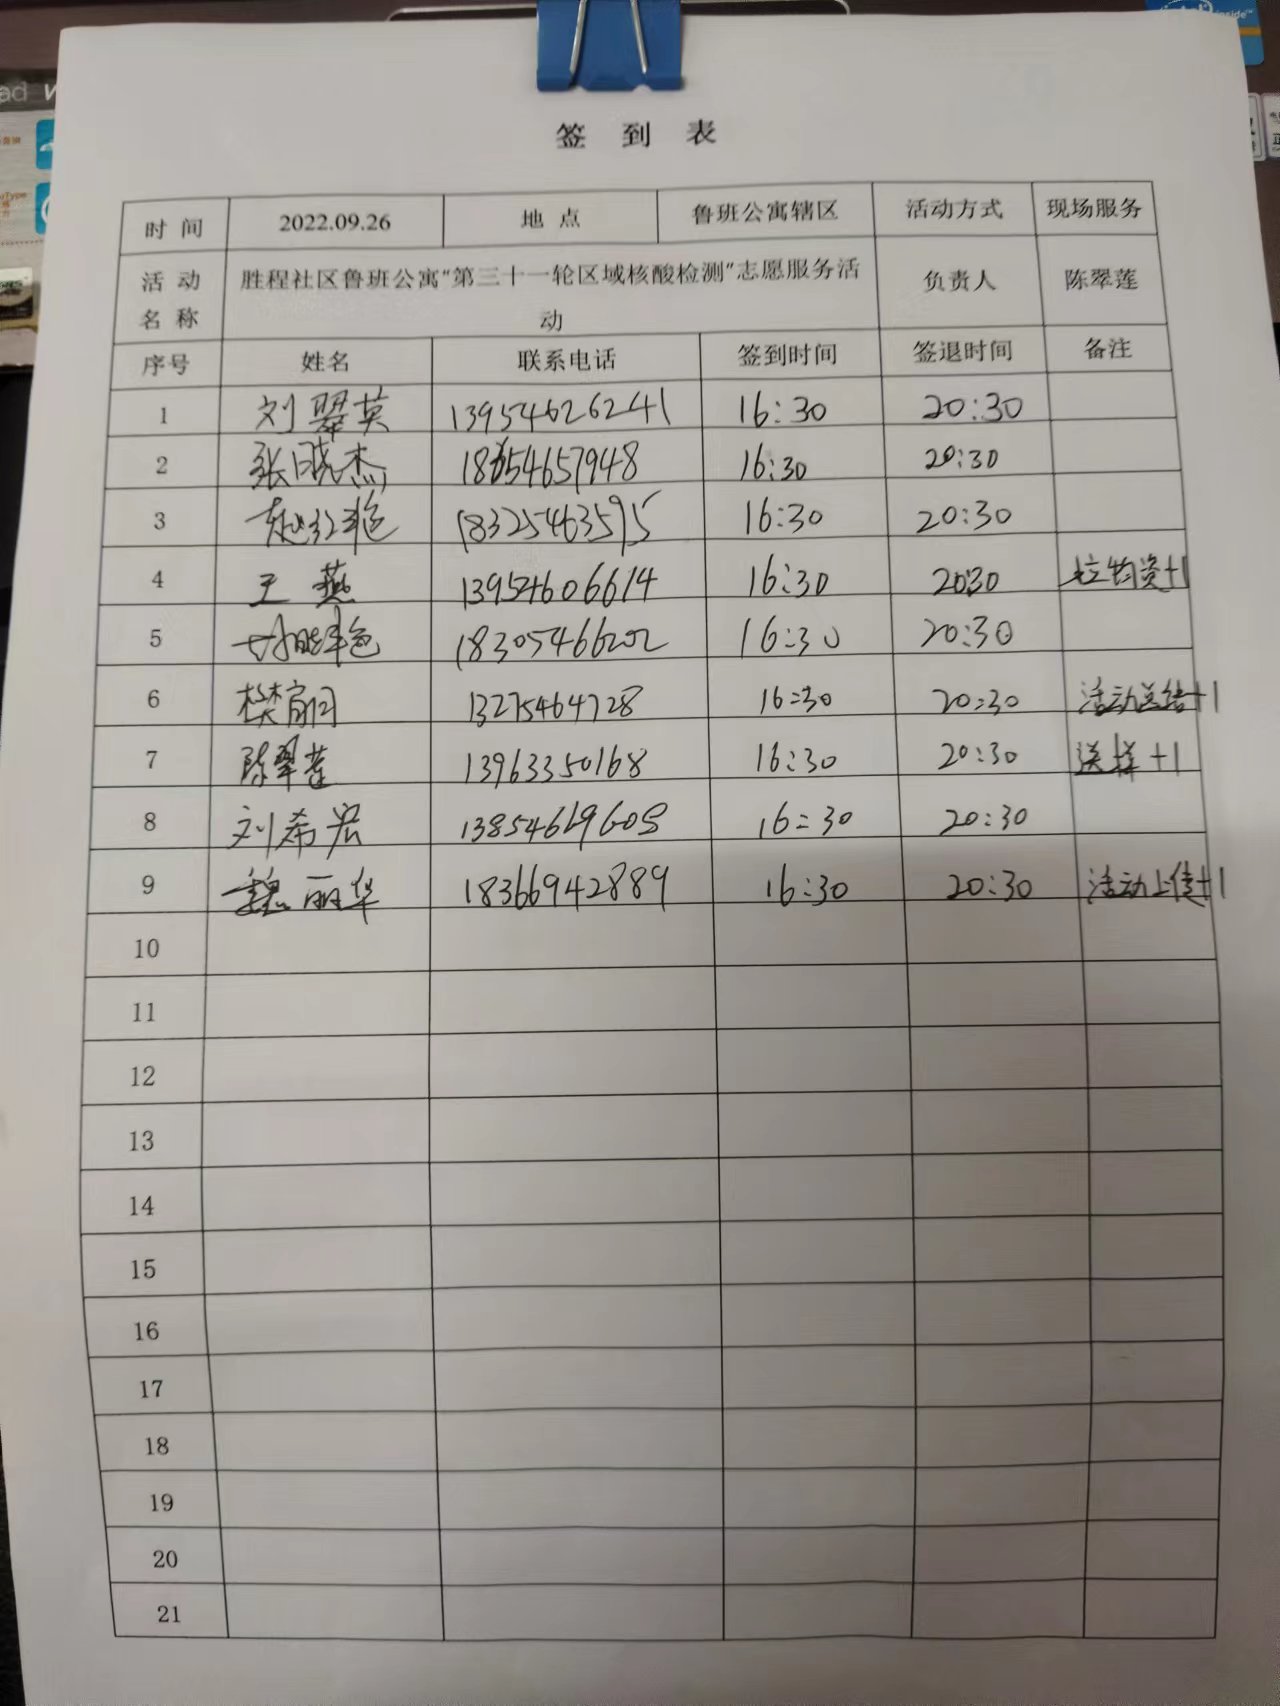 签 到 表
时 间 2022.09.26 地 点 鲁班公寓辖区 活动方式 现场服务
活 动 名 称 胜程社区鲁班公寓“第三十一轮区域核酸检测”志愿服务活动 负责人 陈翠莲
序号 姓名 联系电话 签到时间 签退时间 备注
1 刘翠英 13954626241 16:30 20:30
2 张晓杰 18654657948 16:30 20:30
3 赵红艳 18325463595 16:30 20:30
4 王燕 13954606614 16:30 20:30 拉物资+1
5 胡晓艳 18305466202 16:30 20:30
6 樊 13275464728 16:30 20:30 活动总结+1
7 陈翠莲 13963350168 16:30 20:30 送样+1
8 刘希宏 13854669609 16:30 20:30
9 魏丽华 18366942889 16:30 20:30 活动上传+1
10
11
12
13
14
15
16
17
18
19
20
21
intel inside™